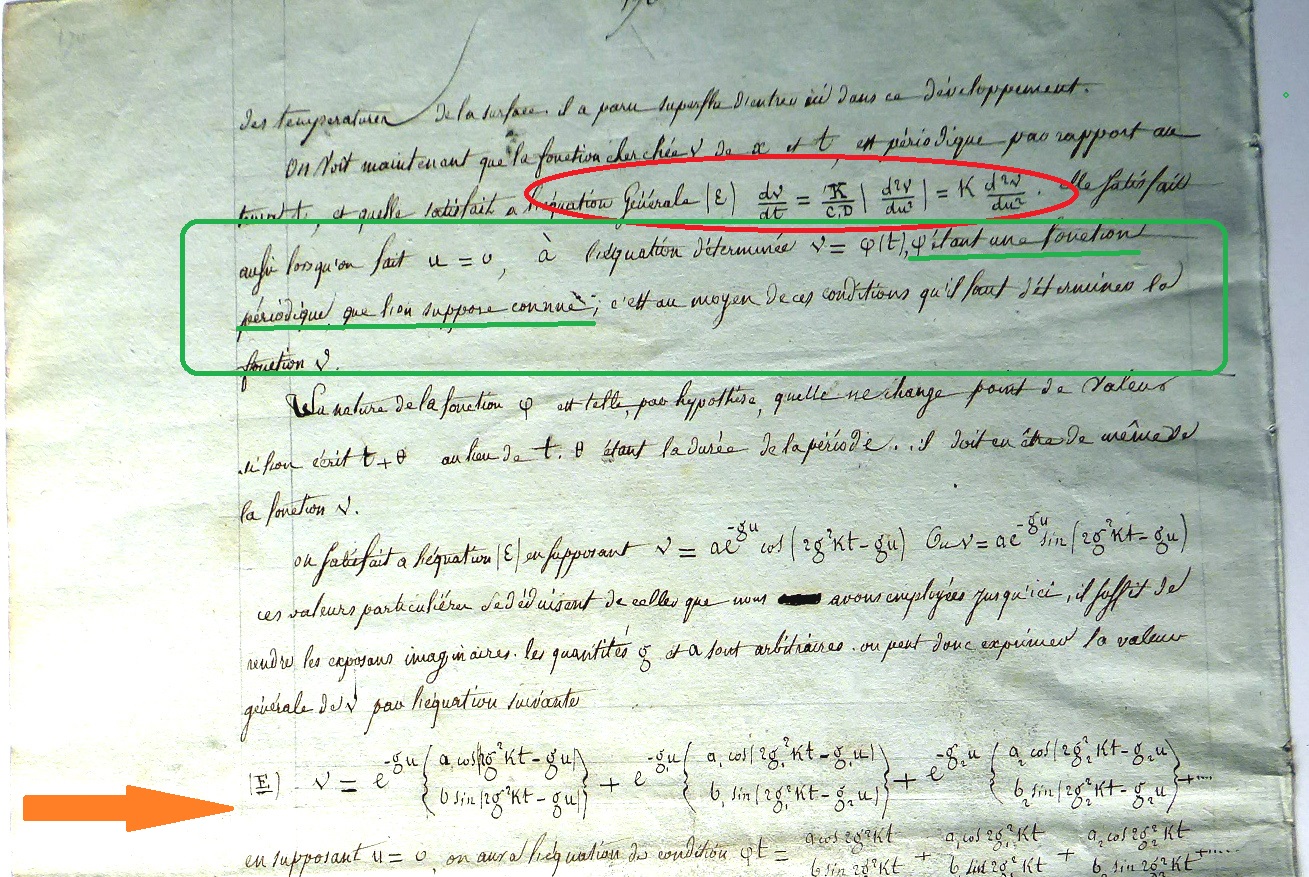 des temperatures de la surface. il a paru superflu d'entrer ici dans ce développement.
On voit maintenant que la fonction cherchée v de x et t, est périodique par rapport au
tems t, et quelle satisfait a l'équation Générale (ε) dv/dt = K/C.D ( d²v/du² ) = K d²v/du². elle satisfait
aussi lorsqu'on fait u = 0, à l'équation déterminée v = φ(t), φ étant une fonction
périodique que l'on suppose connue; c'est au moyen de ces conditions qu'il faut déterminer la
fonction v.
La nature de la fonction φ est telle, par hypothèse, quelle ne change point de valeur
si l'on écrit t + θ au lieu de t. θ étant la durée de la période.. il doit en être de même de
la fonction v.
on satisfait a l'équation (ε) en supposant v = ae^{-gu} cos (2g²Kt - gu) Ou v = ae^{-gu} sin (2g²Kt - gu)
ces valeurs particulières se déduisent de celles que nous avons employées jusqu'ici, il suffit de
rendre les exposans imaginaires. les quantités g et a sont arbitraires. on peut donc exprimer la valeur
générale de v par l'équation suivante
(E) v = e^{-gu} { a cos(2g²Kt - gu) b sin(2g²Kt - gu) } + e^{-g₁u} { a₁ cos(2g₁²Kt - g₁u) b₁ sin(2g₁²Kt - g₂u) } + e^{-g₂u} { a₂ cos(2g₂²Kt - g₂u) b₂ sin(2g₂²Kt - g₂u) } + ....
en supposant u = 0, on aura l'équation de condition φt = a cos 2g²Kt b sin 2g²Kt + a₁ cos 2g₁²Kt b₁ sin 2g₁²Kt + a₂ cos 2g₂²Kt b₂ sin 2g₂²Kt + ....